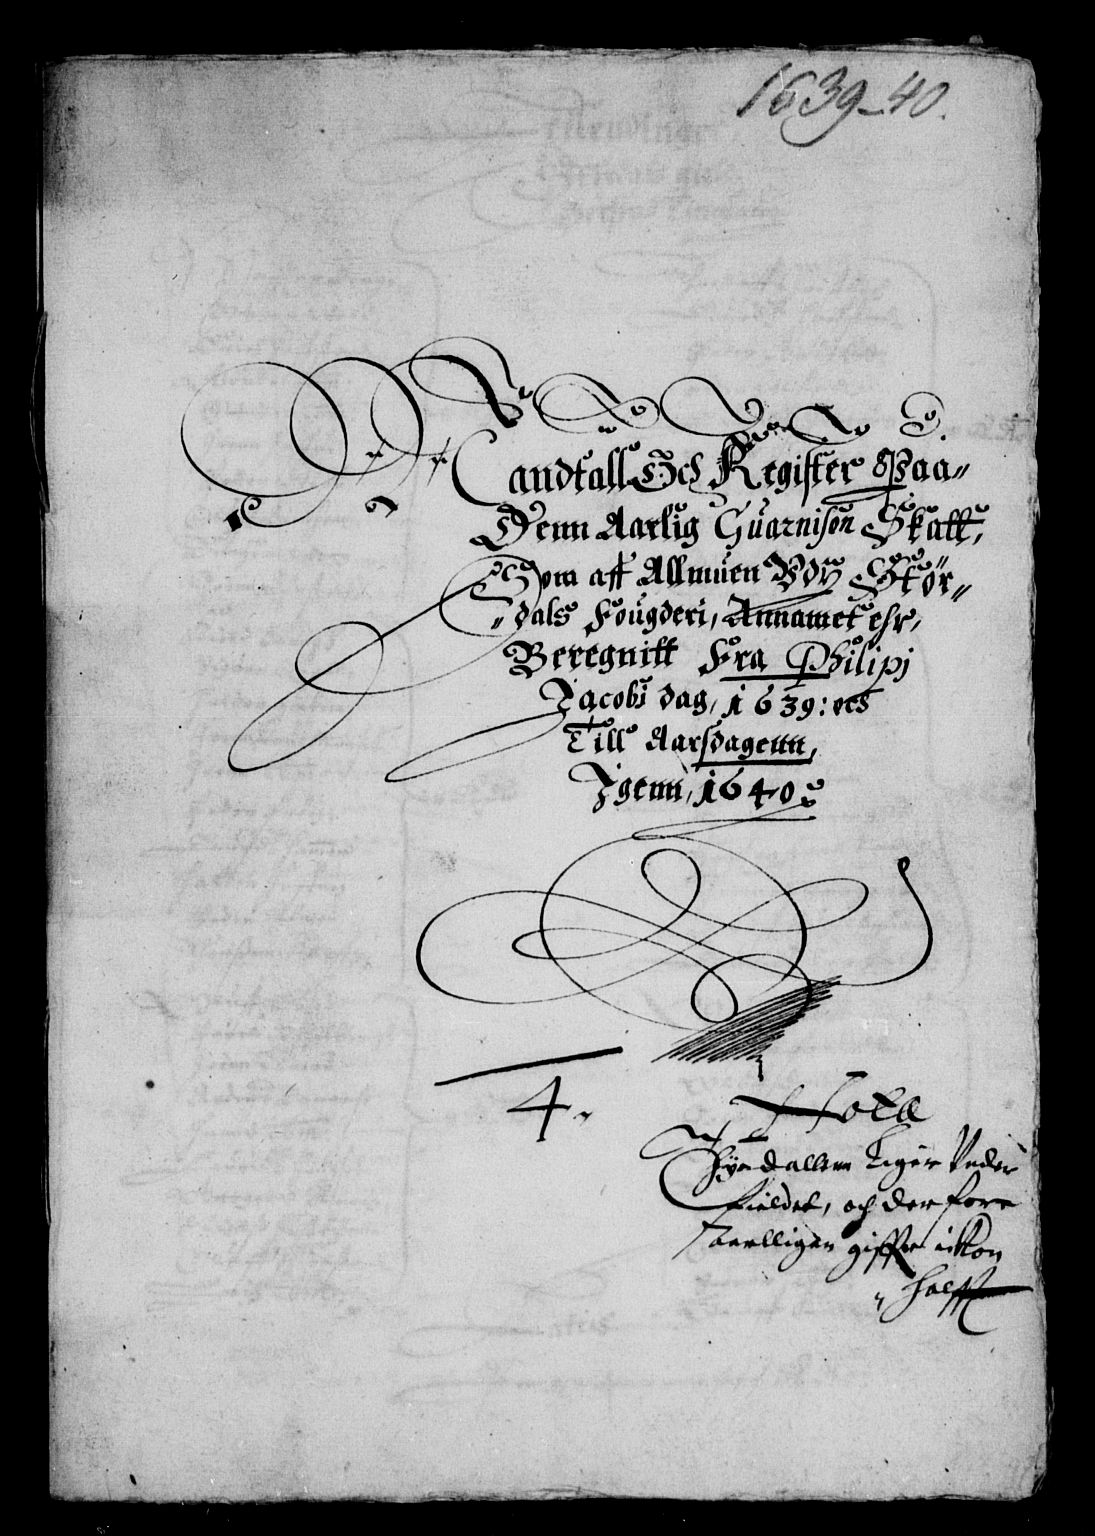 1639-40.
Mandtall Och Register Paa"
Denn Aarlig Guarnison Skatt,
Som aff Allmuen Vdy Stör"
"dals Fougderi, Annamet ehr,
Beregnitt Fra Philipi
Jacobi dag, 1639:
Till Aarsdagenn,
Igenn, 1640
4.
Nota
Tydallenn Liger Veder
Fieldet, och derfore
aarlligen giffer ickon
halff